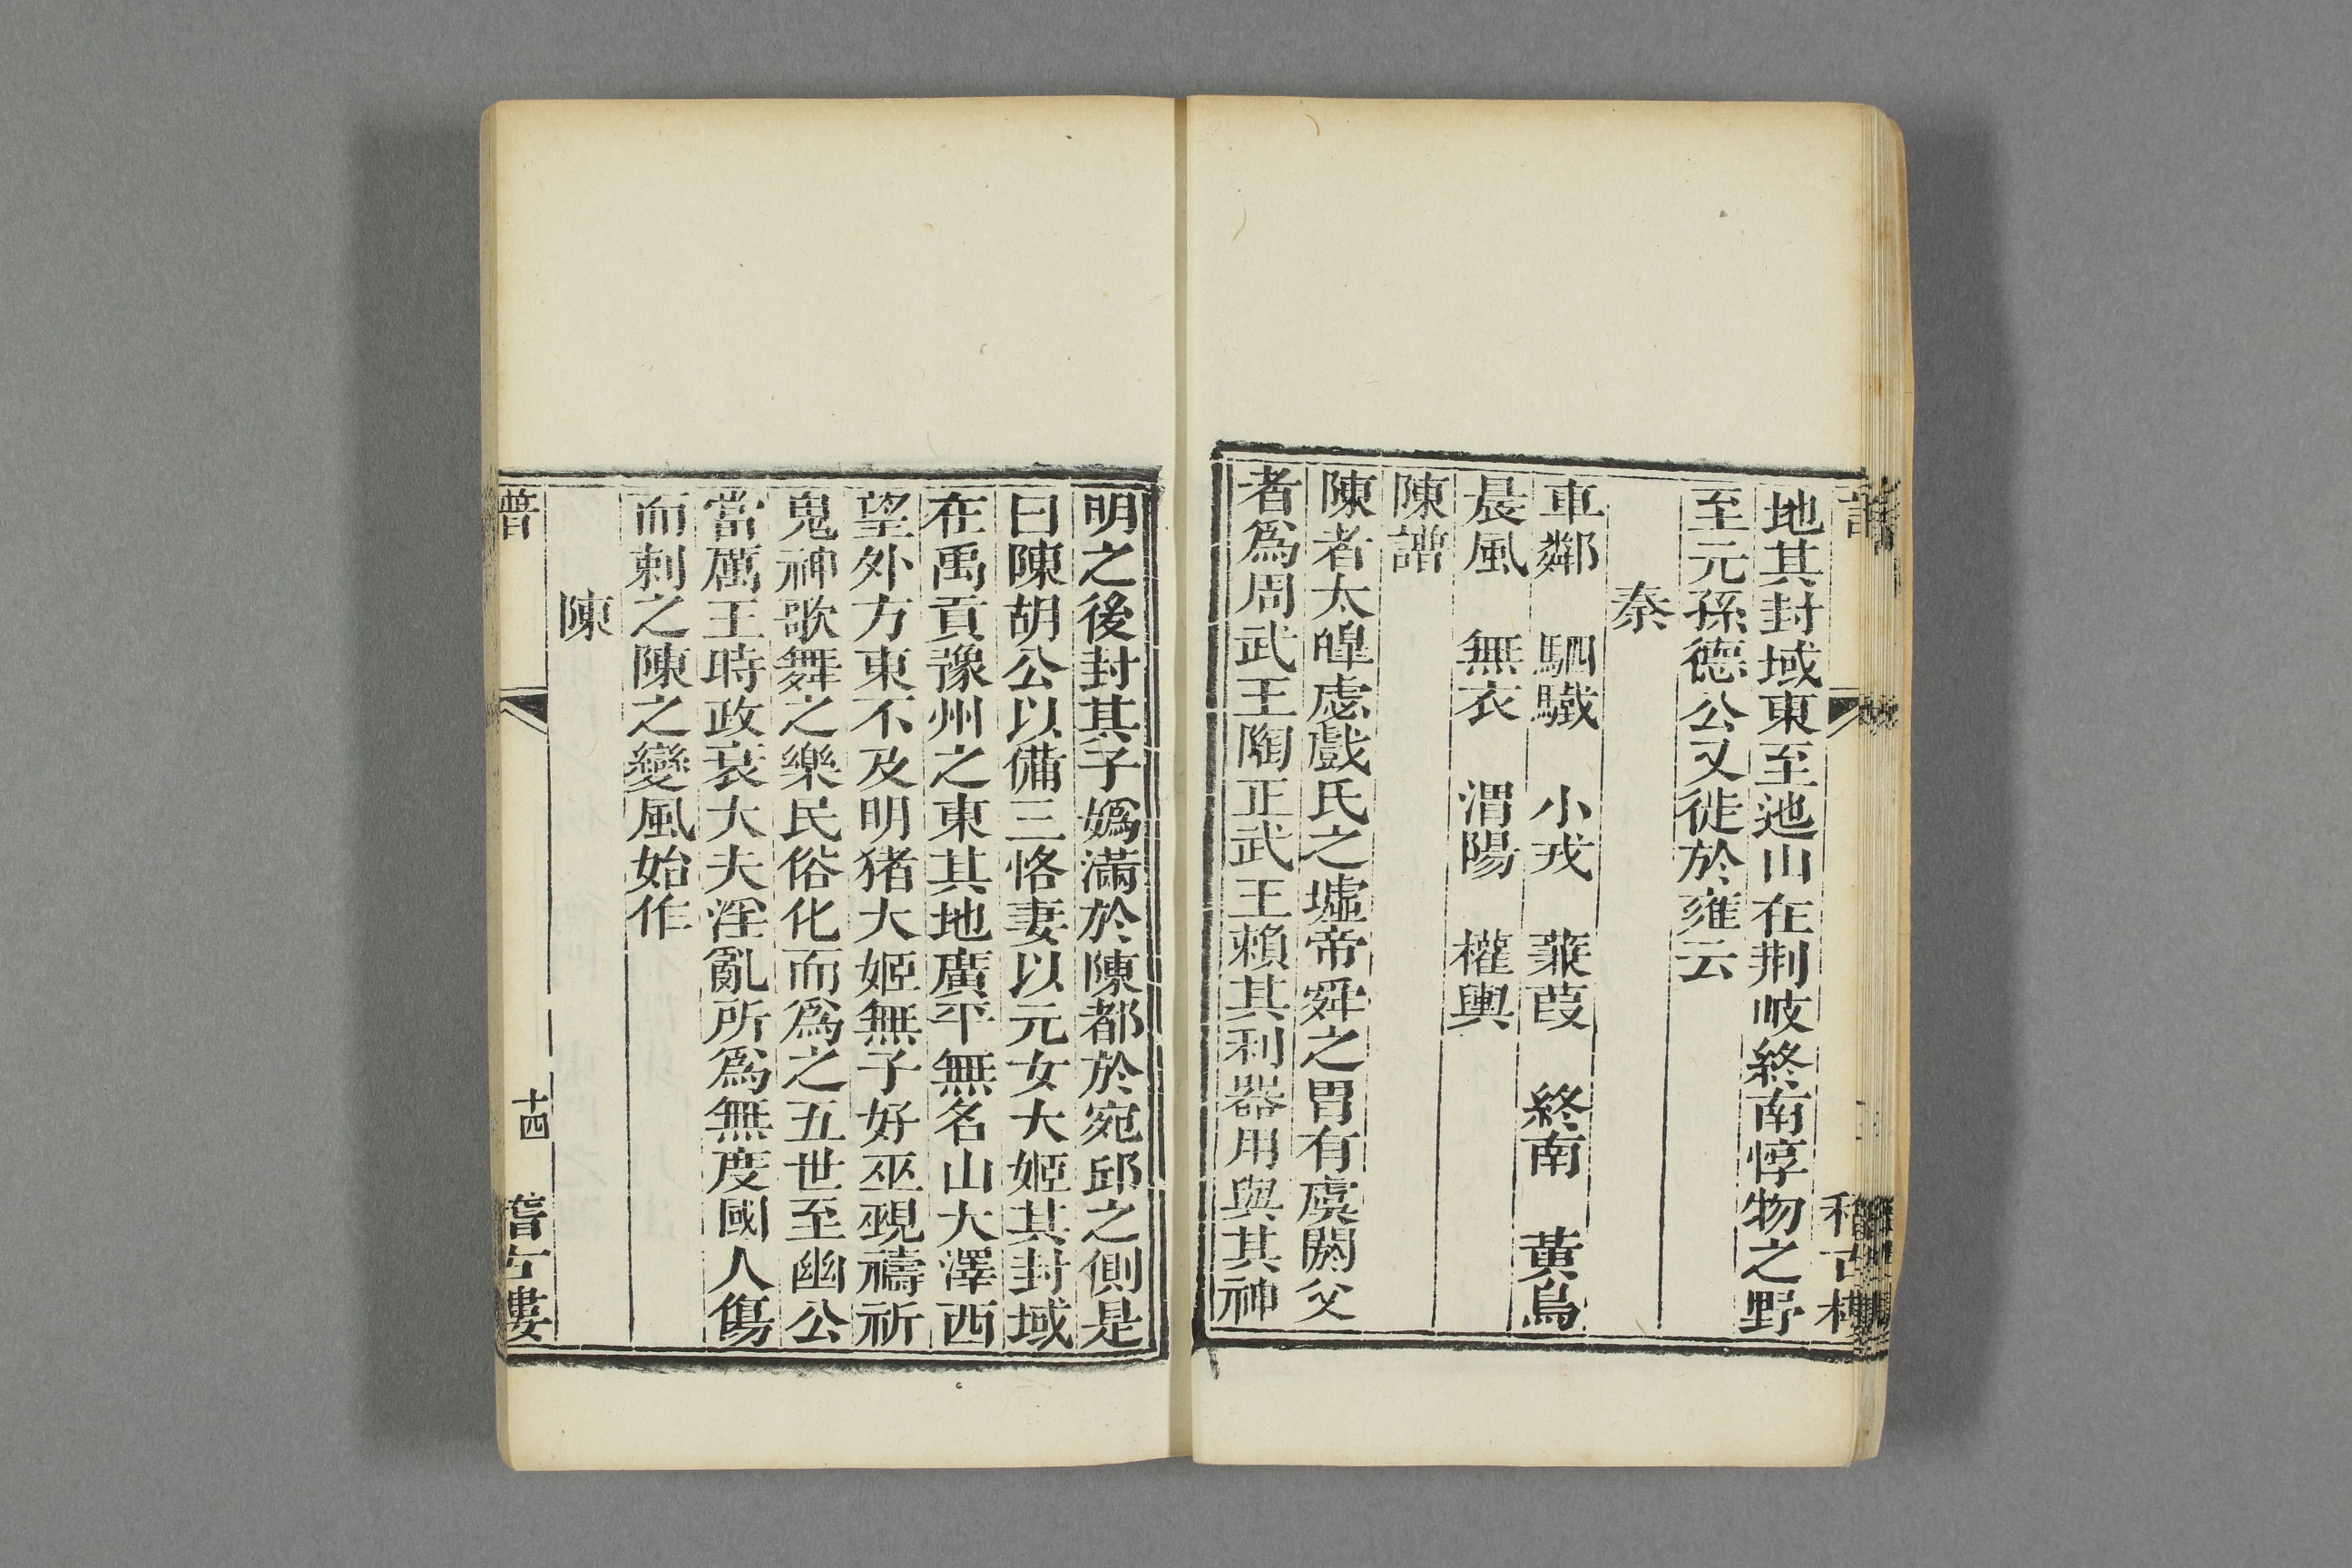 地其封域東至迆山在荆岐終南惇物之野
至元孫德公又徙於雍云
秦
車鄰 駟驖 小戎 蒹葭 終南 黃鳥
晨風 無衣 渭陽 權輿
陳譜
陳者太皥虙戲氏之墟帝舜之胄有虞閼父
者爲周武王陶正武王賴其利器用與其神
明之後封其子媯滿於陳都於宛邱之側是
曰陳胡公以備三恪妻以元女大姬其封域
在禹貢豫州之東其地廣平無名山大澤西
望外方東不及明猪大姬無子好巫覡禱祈
鬼神歌舞之樂民俗化而爲之五世至幽公
當厲王時政衰大夫淫亂所爲無度國人傷
而刺之陳之變風始作
陳
十四